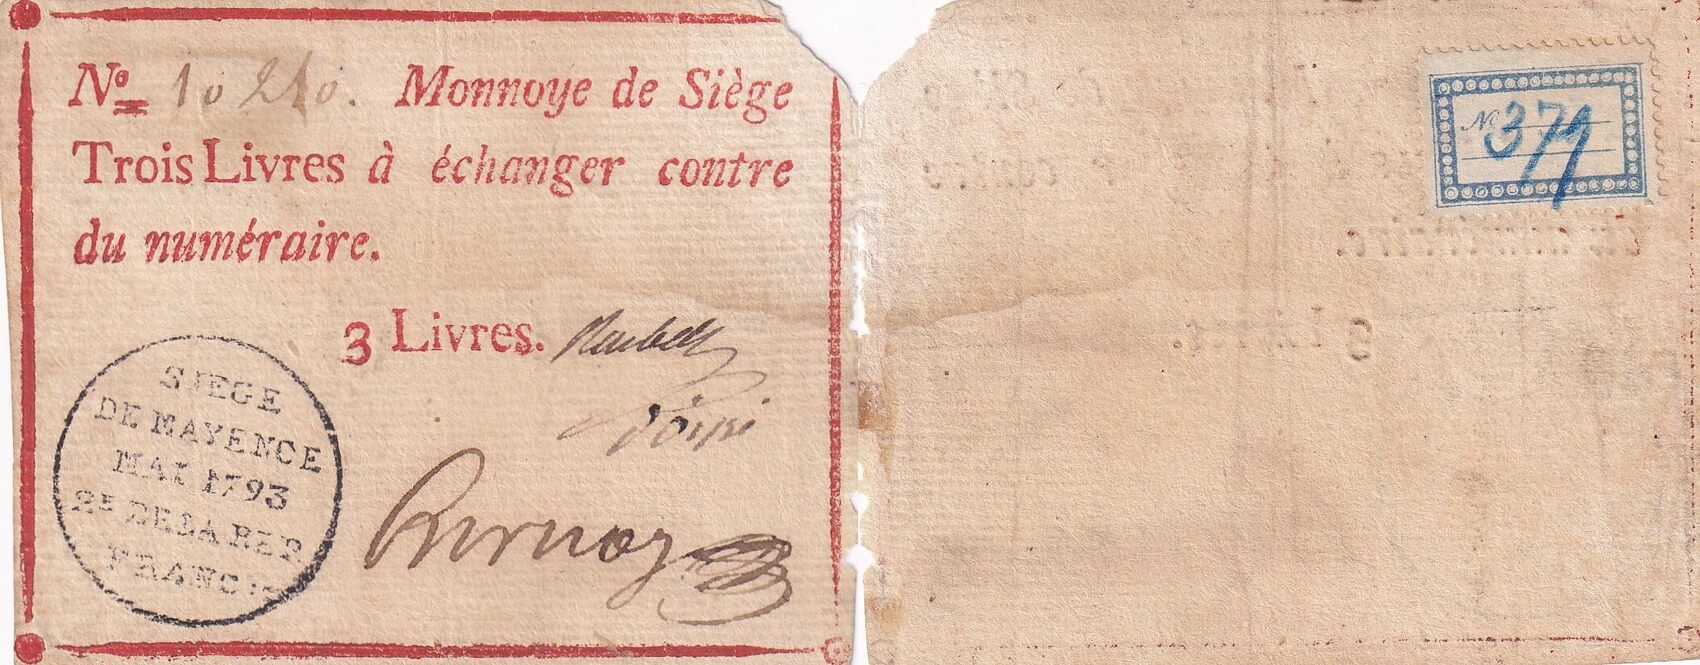 Nº 10210. Monnoye de Siège
Trois Livres à échanger contre
du numéraire.
3 Livres.
SIEGE
DE MAYENCE
MAI 1793
2E DE LA REP
FRANCSE
Nº 379